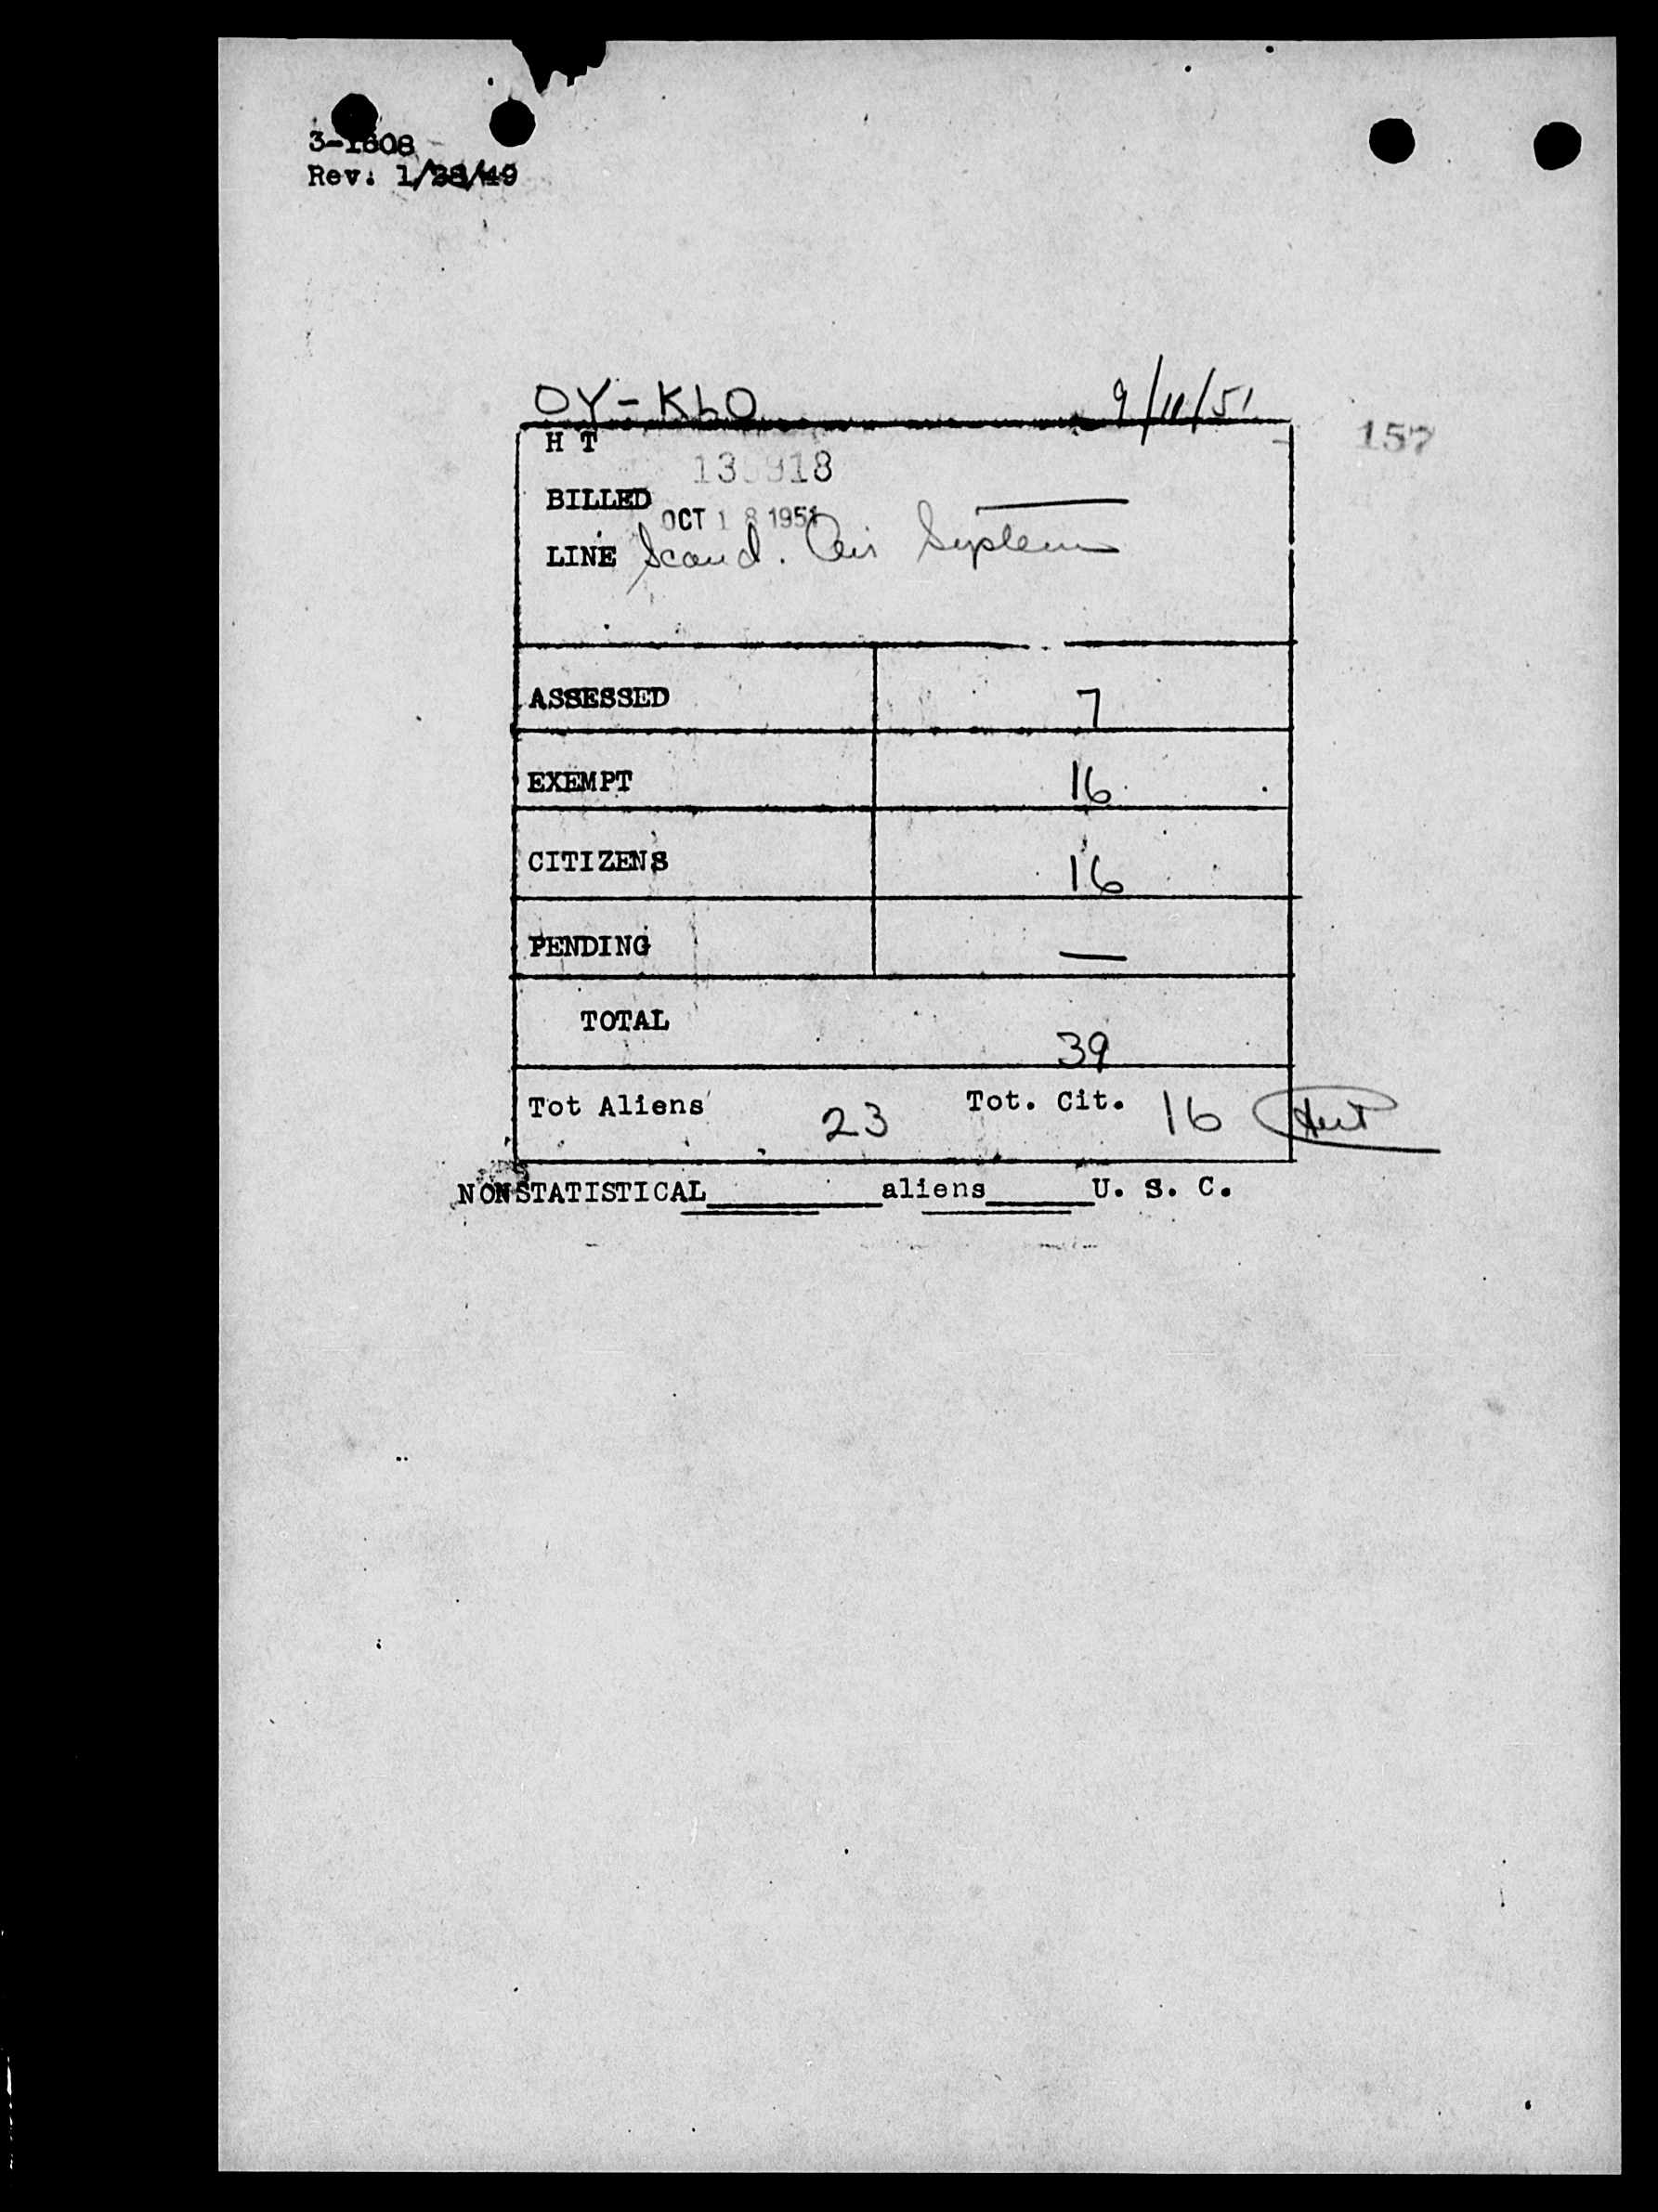 3-1608
Rev. 1/28/49
OY-KLO 9/11/51
H T
157
BILLED
OCT 18 1951
LINE Scand. Air System
ASSESSED 7
EXEMPT 16
CITIZENS 16
PENDING —
TOTAL 39
Tot Aliens 23 Tot. Cit. 16
NONSTATISTICAL______aliens______U. S. C.